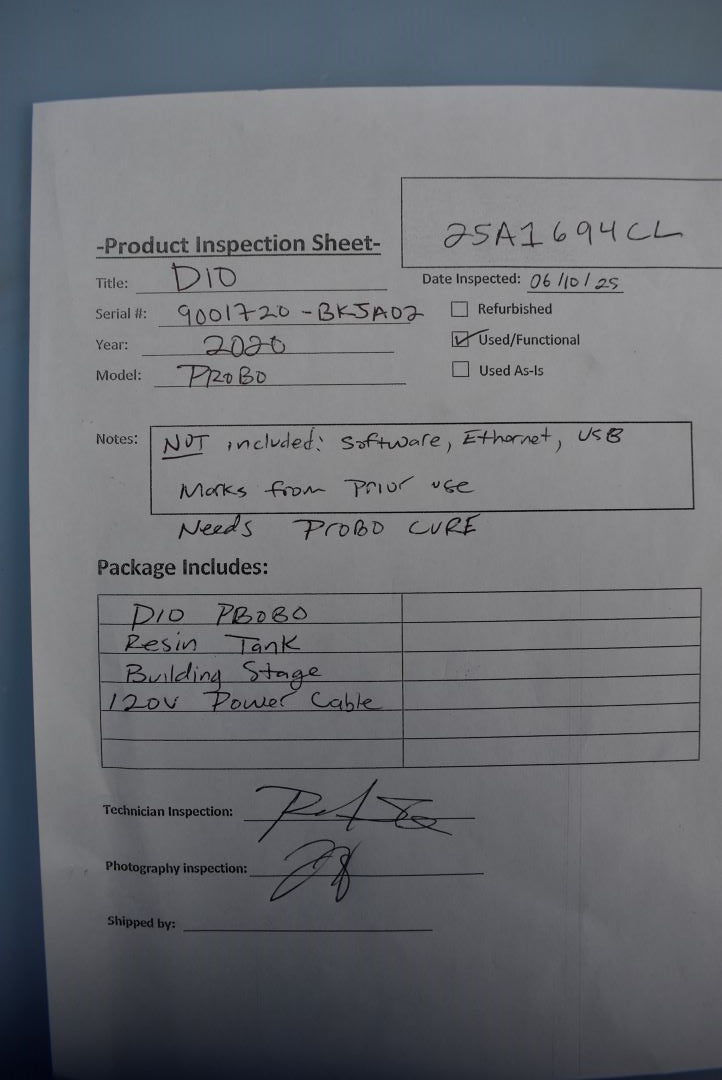 25A1694CL
-Product Inspection Sheet-
Title: DIO
Date Inspected: 06/10/25
Serial #: 9001720-BKJA02
Refurbished
Year: 2020
Used/Functional
Model: PROBO
Used As-Is
Notes: NOT included: Software, Ethornet, USB
Marks from Prior use
Needs ProBO CURE
Package Includes:
DIO PBOBO
Resin Tank
Building Stage
120V Power Cable
Technician Inspection:
Photography inspection:
Shipped by: